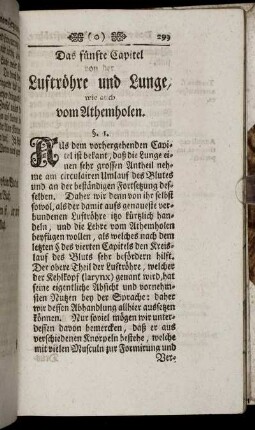 ( o ) 299
Das fünfte Capitel
von der
Luftröhre und Lunge,
wie auch
vom Athemholen.
§. 1.
Aus dem vorhergehenden Capi-
tel ist bekant, daß die Lunge ei-
nen sehr grossen Antheil neh-
me am circulairen Umlauf des Blutes
und an der beständigen Fortsetzung des-
selben. Daher wir denn von ihr selbst
sowol, als der damit aufs genaueste ver-
bundenen Luftröhre itzo kürtzlich han-
deln, und die Lehre vom Athemholen
beyfügen wollen, als welches nach dem
letzten § des vierten Capitels den Kreis-
lauf des Bluts sehr befördern hilft.
Der obere Theil der Luftröhre, welcher
der Kehlkopf (larynx) genant wird, hat
seine eigentliche Absicht und vornehm-
sten Nutzen bey der Sprache: daher
wir dessen Abhandlung allhier aussetzen
können. Nur soviel mögen wir unter-
dessen davon bemercken, daß er aus
verschiedenen Knorpeln bestehe, welche
mit vielen Musculn zur Formirung und
Ver-